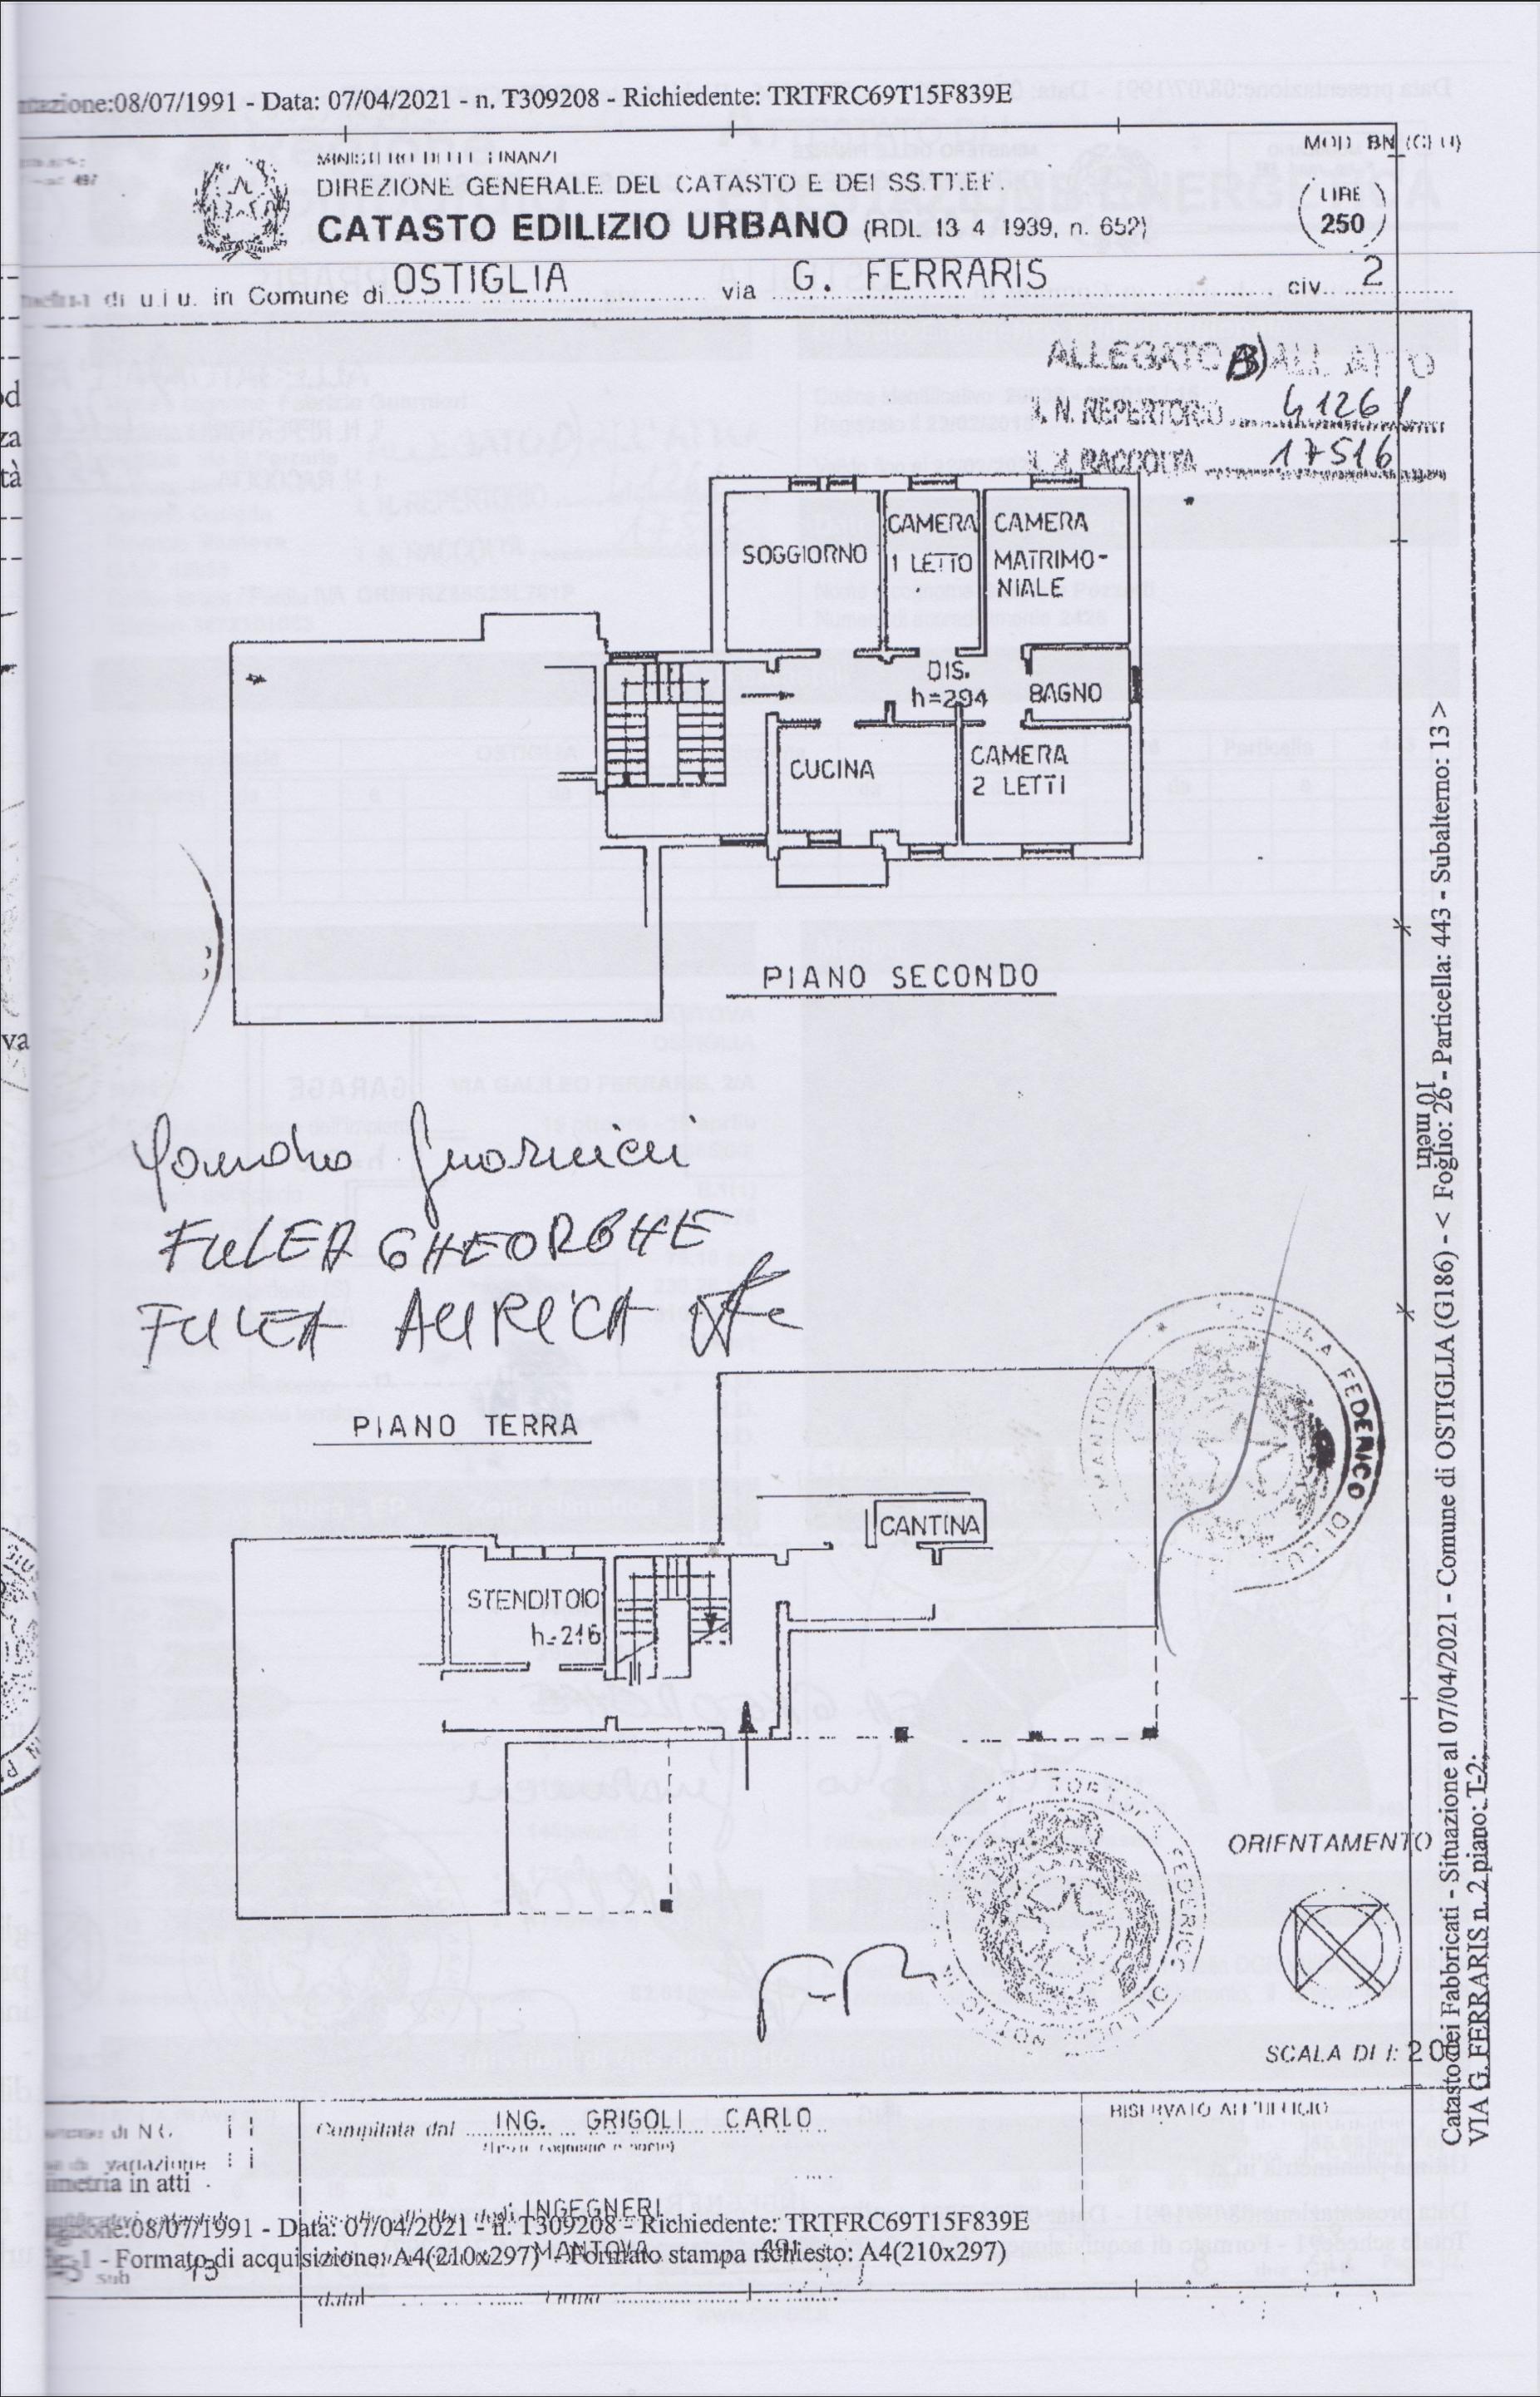 tazione:08/07/1991 - Data: 07/04/2021 - n. T309208 - Richiedente: TRTFRC69T15F839E
MOD. BN (CEU)
MINISTERO DELLE FINANZE
DIREZIONE GENERALE DEL CATASTO E DEI SS.TT.EE.
CATASTO EDILIZIO URBANO (RDL 13 4 1939, n. 652)
LIRE
250
di u.i.u. in Comune di OSTIGLIA via G. FERRARIS civ. 2
ALLEGATO B) ALL'ATTO
N. REPERTORIO 41261
RACCOLTA 17516
od
za
tà
SOGGIORNO
CAMERA
1 LETTO
CAMERA
MATRIMO-
NIALE
DIS.
h=294
BAGNO
CUCINA
CAMERA
2 LETTI
PIANO SECONDO
va
FULEA GHEORGHE
FULEA AURICA
PIANO TERRA
CANTINA
STENDITOIO
h=216
FEDERICO DI
MANTOVA
TORTORA FEDERICO DI LUCIO NOTAIO IN
ORIENTAMENTO
SCALA DI 1: 20
10 metri
Catasto dei Fabbricati - Situazione al 07/04/2021 - Comune di OSTIGLIA (G186) - < Foglio: 26 - Particella: 443 - Subalterno: 13 >
VIA G. FERRARIS n. 2 piano: T-2;
di N.C.
di variazione
imetria in atti
Compilata dal ING. GRIGOLI CARLO
(Titolo, cognome e nome)
RISERVATO ALL'UFFICIO
INGEGNERI
zione:08/07/1991 - Data: 07/04/2021 - n. T309208 - Richiedente: TRTFRC69T15F839E
MANTOVA 491
1 - Formato di acquisizione: A4(210x297) - Formato stampa richiesto: A4(210x297)
sub 13
data Firma